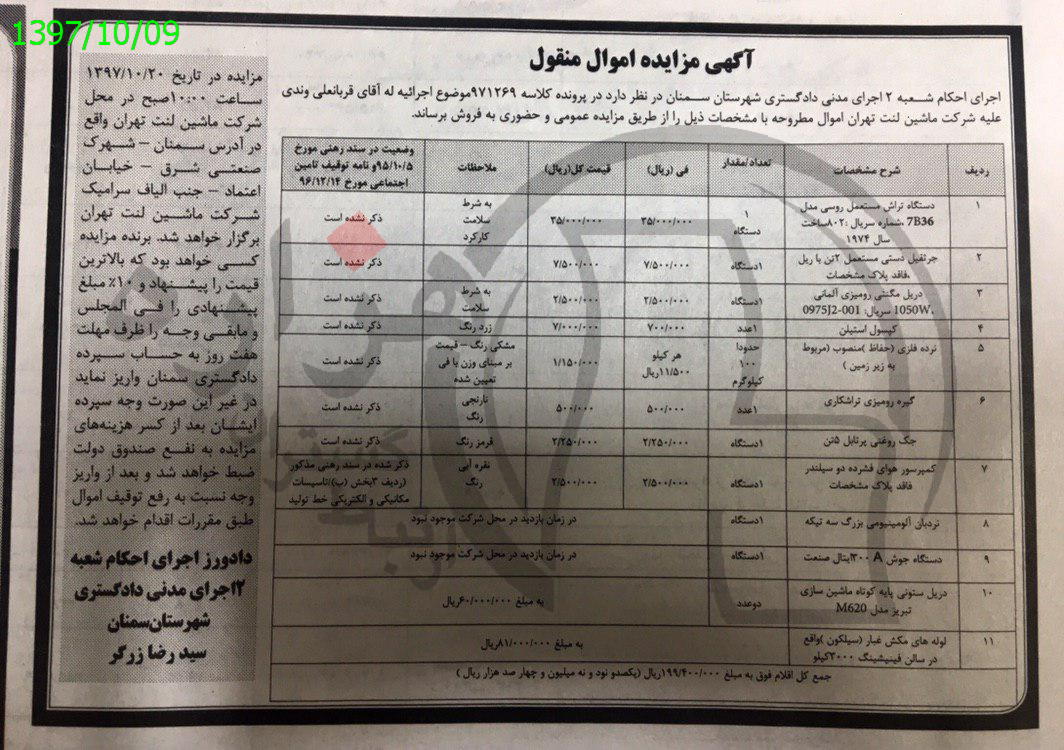 1397/10/09
آگهی مزایده اموال منقول
اجرای احکام شعبه ۲ اجرای مدنی دادگستری شهرستان سمنان در نظر دارد در پرونده کلاسه ۹۷۱۲۶۹موضوع اجرائیه له آقای قربانعلی وندی
علیه شرکت ماشین لنت تهران اموال مطروحه با مشخصات ذیل را از طریق مزایده عمومی و حضوری به فروش برساند.
ردیف شرح مشخصات تعداد/مقدار فی (ریال) قیمت کل(ریال) ملاحظات وضعیت در سند رهنی مورخ
۹۵/۱۰/۵و نامه توقیف تامین
اجتماعی مورخ ۹۶/۱۲/۱۴
۱ دستگاه تراش مستعمل روسی مدل
7B36 ،شماره سریال :۸۰۲ساخت
سال ۱۹۷۴
۱
دستگاه
۳۵/۰۰۰/۰۰۰ ۳۵/۰۰۰/۰۰۰
به شرط
سلامت
کارکرد
ذکر نشده است
۲ جرثقیل دستی مستعمل ۲تن با ریل
،فاقد پلاک مشخصات
۱دستگاه ۷/۵۰۰/۰۰۰ ۷/۵۰۰/۰۰۰ ذکر نشده است
۳ دریل مگنتی رومیزی آلمانی
،1050W سریال: 0975J2-001
۱دستگاه ۲/۵۰۰/۰۰۰ ۲/۵۰۰/۰۰۰
به شرط
سلامت
ذکر نشده است
۴ کپسول استیلن ۱عدد ۷۰۰/۰۰۰ ۷/۰۰۰/۰۰۰ زرد رنگ ذکر نشده است
۵ نرده فلزی (حفاظ )منصوب (مربوط
به زیر زمین )
حدودا
۱۰۰
کیلوگرم
هر کیلو
۱۱/۵۰۰ریال
۱/۱۵۰/۰۰۰
مشکی رنگ – قیمت
بر مبنای وزن با فی
تعیین شده
ذکر نشده است
۶ گیره رومیزی تراشکاری ۱عدد ۵۰۰/۰۰۰ ۵۰۰/۰۰۰
نارنجی
رنگ
ذکر نشده است
جک روغنی پرتابل ۵تن ۱دستگاه ۲/۲۵۰/۰۰۰ ۲/۲۵۰/۰۰۰ قرمز رنگ ذکر نشده است
۷ کمپرسور هوای فشرده دو سیلندر
فاقد پلاک مشخصات
۱دستگاه ۲/۵۰۰/۰۰۰ ۲/۵۰۰/۰۰۰
نقره آبی
رنگ
ذکر شده در سند رهنی مذکور
(ردیف ۳بخش (ب)/تاسیسات
مکانیکی و الکتریکی خط تولید
۸ نردبان آلومینیومی بزرگ سه تیکه ۱دستگاه در زمان بازدید در محل شرکت موجود نبود
۹ دستگاه جوش A ۳۰۰ایتال صنعت ۱دستگاه در زمان بازدید در محل شرکت موجود نبود
۱۰ دریل ستونی پایه کوتاه ماشین سازی
تبریز مدل M620
دوعدد به مبلغ ۶۰/۰۰۰/۰۰۰ریال
۱۱ لوله های مکش غبار (سیلکون )واقع
در سالن فینیشینگ ۳۰۰۰کیلو
به مبلغ ۸۱/۰۰۰/۰۰۰ریال
جمع کل اقلام فوق به مبلغ ۱۹۹/۴۰۰/۰۰۰ریال (یکصدو نود و نه میلیون و چهار صد هزار ریال )
مزایده در تاریخ ۱۳۹۷/۱۰/۲۰
ساعت ۱۰:۰۰صبح در محل
شرکت ماشین لنت تهران واقع
در آدرس سمنان – شهرک
صنعتی شرق – خیابان
اعتماد – جنب الیاف سرامیک
شرکت ماشین لنت تهران
برگزار خواهد شد. برنده مزایده
کسی خواهد بود که بالاترین
قیمت را پیشنهاد و ۱۰٪ مبلغ
پیشنهادی را فی المجلس
و مابقی وجه را ظرف مهلت
هفت روز به حساب سپرده
دادگستری سمنان واریز نماید
در غیر این صورت وجه سپرده
ایشان بعد از کسر هزینه‌های
مزایده به نفع صندوق دولت
ضبط خواهد شد و بعد از واریز
وجه نسبت به رفع توقیف اموال
طبق مقررات اقدام خواهد شد.
دادورز اجرای احکام شعبه
۲اجرای مدنی دادگستری
شهرستان‌سمنان
سید رضا زرگر